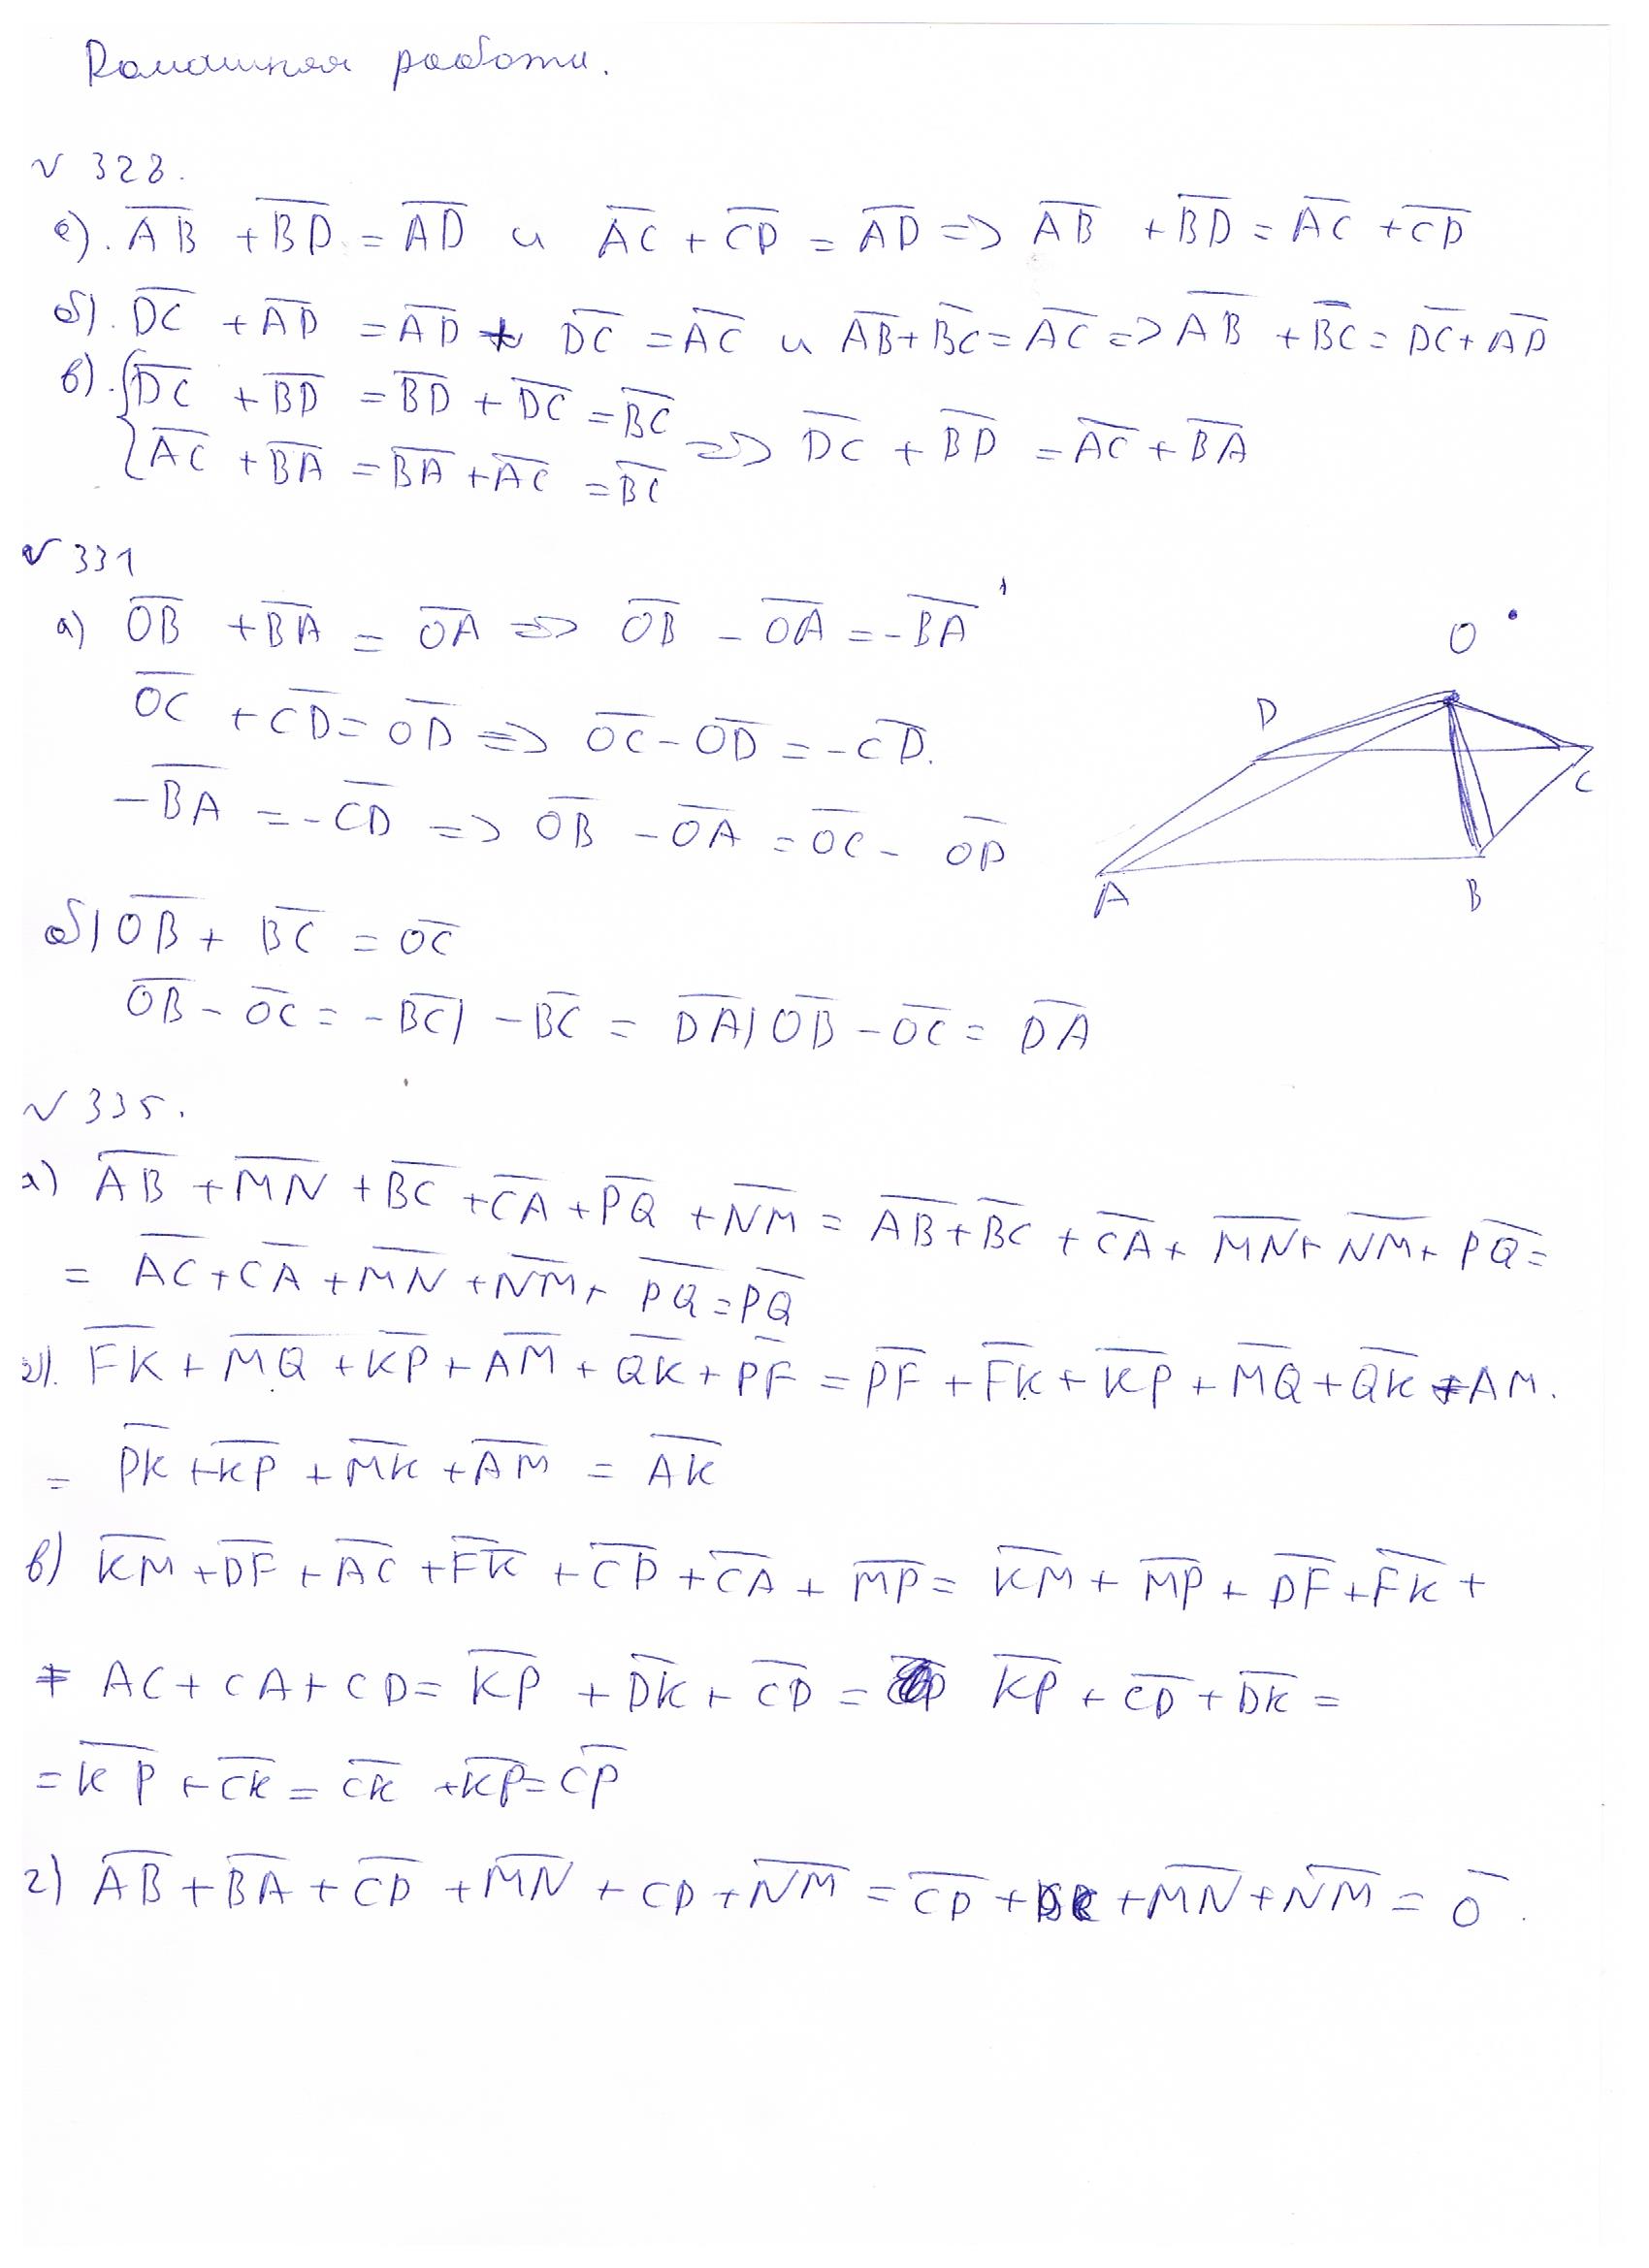 Домашняя работа.
№ 328.
а). A̅B̅ + B̅D̅ = A̅D̅ и A̅C̅ + C̅D̅ = A̅D̅ => A̅B̅ + B̅D̅ = A̅C̅ + C̅D̅
б). D̅C̅ + A̅D̅ = A̅D̅ + D̅C̅ = A̅C̅ и A̅B̅ + B̅C̅ = A̅C̅ => A̅B̅ + B̅C̅ = D̅C̅ + A̅D̅
в). { D̅C̅ + B̅D̅ = B̅D̅ + D̅C̅ = B̅C̅
A̅C̅ + B̅A̅ = B̅A̅ + A̅C̅ = B̅C̅ => D̅C̅ + B̅D̅ = A̅C̅ + B̅A̅
№ 331
а) O̅B̅ + B̅A̅ = O̅A̅ => O̅B̅ - O̅A̅ = -B̅A̅
O̅C̅ + C̅D̅ = O̅D̅ => O̅C̅ - O̅D̅ = -C̅D̅.
-B̅A̅ = -C̅D̅ => O̅B̅ - O̅A̅ = O̅C̅ - O̅D̅
O
D
C
A
B
б) O̅B̅ + B̅C̅ = O̅C̅
O̅B̅ - O̅C̅ = -B̅C̅) -B̅C̅ = D̅A̅) O̅B̅ - O̅C̅ = D̅A̅
№ 335.
а) A̅B̅ + M̅N̅ + B̅C̅ + C̅A̅ + P̅Q̅ + N̅M̅ = A̅B̅ + B̅C̅ + C̅A̅ + M̅N̅ + N̅M̅ + P̅Q̅ =
= A̅C̅ + C̅A̅ + M̅N̅ + N̅M̅ + P̅Q̅ = P̅Q̅
б). F̅K̅ + M̅Q̅ + K̅P̅ + A̅M̅ + Q̅K̅ + P̅F̅ = P̅F̅ + F̅K̅ + K̅P̅ + M̅Q̅ + Q̅K̅ + AM.
= P̅K̅ + K̅P̅ + M̅K̅ + A̅M̅ = A̅K̅
в) K̅M̅ + D̅F̅ + A̅C̅ + F̅K̅ + C̅D̅ + C̅A̅ + M̅P̅ = K̅M̅ + M̅P̅ + D̅F̅ + F̅K̅ +
+ AC + CA + CD = K̅P̅ + D̅K̅ + C̅D̅ = K̅P̅ + C̅D̅ + D̅K̅ =
= K̅P̅ + C̅K̅ = C̅K̅ + K̅P̅ = C̅P̅
г) A̅B̅ + B̅A̅ + C̅D̅ + M̅N̅ + CD + N̅M̅ = C̅D̅ + + M̅N̅ + N̅M̅ = 0̅.